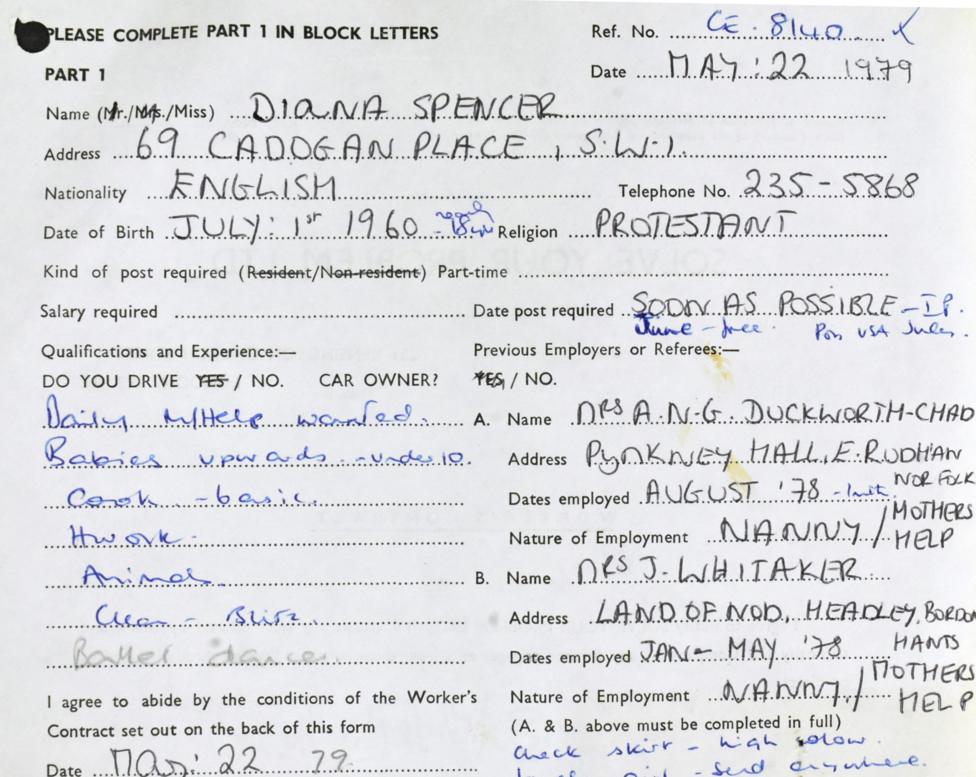 PLEASE COMPLETE PART 1 IN BLOCK LETTERS
Ref. No. CE. 8140.
PART 1
Date MAY: 22 1979
Name (Mr./Mrs./Miss) DIANA SPENCER
Address 69 CADOGAN PLACE, S.W.1.
Nationality ENGLISH Telephone No. 235-5868
Date of Birth JULY: 1st 1960 Religion PROTESTANT
Kind of post required (Resident/Non-resident) Part-time
Salary required Date post required SOON AS POSSIBLE
June - free. USA
Qualifications and Experience:— Previous Employers or Referees:—
DO YOU DRIVE YES / NO. CAR OWNER? YES / NO.
Daily M/Help wanted. A. Name MRS A.N.G. DUCKWORTH-CHAD
Babies upwards - under 10. Address PYNKNEY HALL, E. RUDHAM
NORFOLK
Cook - basic. Dates employed AUGUST '78
Hwork. Nature of Employment NANNY / MOTHERS HELP
Animals B. Name MRS J. WHITAKER
Clean - Blitz. Address LAND OF NOD, HEADLEY, BORDON
HANTS
Ballet dance. Dates employed JAN - MAY '78
I agree to abide by the conditions of the Worker's Nature of Employment NANNY / MOTHERS HELP
Contract set out on the back of this form (A. & B. above must be completed in full)
Date May: 22 79. check skirt - high
send anywhere.